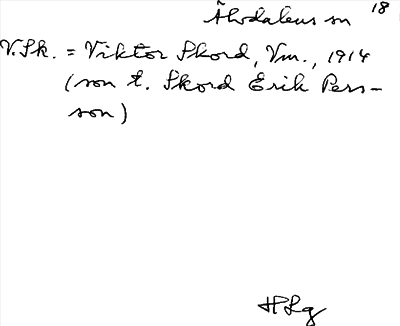 Älvdalens sn 18
V.Sk. = Viktor Skord, Vm., 1914
(son t. Skord Erik Pers-
son)
HLg